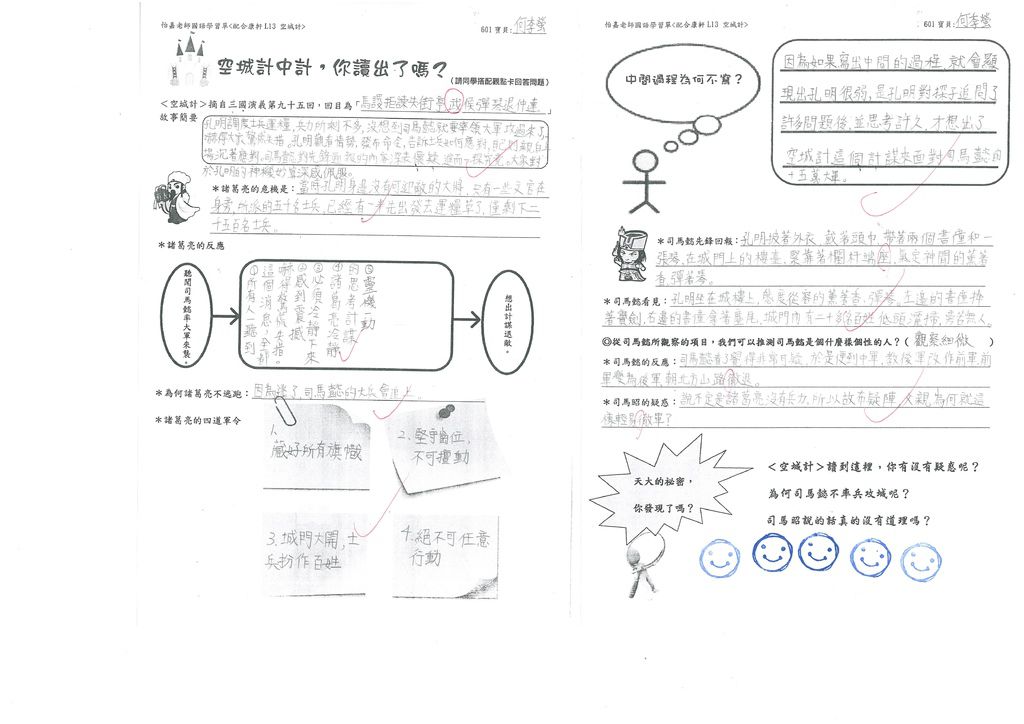 怡嘉老師國語學習單<配合康軒 L13 空城計>
601 寶貝:何季螢
空城計中計，你讀出了嗎？
(請同學搭配觀點卡回答問題)
＜空城計＞摘自三國演義第九十五回，回目為「馬謖拒諫失街亭，武侯彈琴退仲達」
故事簡要
孔明調度士兵運糧，兵力所剩不多，沒想到司馬懿就要率領大軍攻過來了，
嚇得大家驚慌失措。孔明觀看情勢，發布命令，告訴士兵如何應對，
於孔明的神機妙算深感佩服。
＊諸葛亮的危機是：當時孔明身邊沒有可迎敵的大將，只有一些文官在
身旁，所派的五千名士兵，已經有一半先出發去運糧草了，僅剩下二
千五百名士兵。
＊諸葛亮的反應
聽聞司馬懿率大軍來襲。
①所有人一聽到
這個消息，全都
嚇得驚慌失措。
②感到震撼
③必須冷靜下來
④諸葛亮冷靜
的思考計謀
⑤靈機一動
想出計謀退敵。
＊為何諸葛亮不逃跑：因為逃了，司馬懿的大兵會追上。
＊諸葛亮的四道軍令
1.
藏好所有旗幟
2.堅守崗位，
不可擅動
3.城門大開，士
兵扮作百姓
4.絕不可任意
行動
怡嘉老師國語學習單<配合康軒 L13 空城計>
601 寶貝:何季螢
中間過程為何不寫？
因為如果寫出中間的過程，就會顯
現出孔明很弱，是孔明對探子追問了
許多問題後，並思考許久，才想出了
空城計這個計謀來面對司馬懿的
十五萬大軍。
＊司馬懿先鋒回報：孔明披著外衣，戴著頭巾，帶著兩個書僮和一
張琴，在城門上的樓臺，緊靠著欄杆端坐，氣定神閒的薰著
香，彈著琴。
＊司馬懿看見：孔明坐在城樓上，態度從容的薰著香，彈琴。左邊的書僮捧
著寶劍，右邊的書僮拿著麈尾，城門內有二十餘個百姓低頭灑掃，旁若無人。
◎從司馬懿所觀察的項目，我們可以推測司馬懿是個什麼樣個性的人？（ 觀察細微 ）
＊司馬懿的反應：司馬懿看了覺得非常可疑，於是便到中軍，教後軍改作前軍，前
軍變為後軍，朝北方山路撤退。
＊司馬昭的疑惑：說不定是諸葛亮沒有兵力，所以故布疑陣，父親為何就這
樣輕易撤軍？
天大的祕密，
你發現了嗎？
＜空城計＞讀到這裡，你有沒有疑惑呢？
為何司馬懿不率兵攻城呢？
司馬昭說的話真的沒有道理嗎？